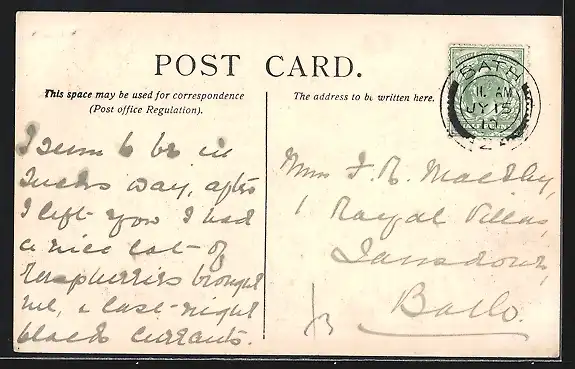 POST CARD.
This space may be used for correspondence
(Post office Regulation).
The address to be written here.
BATH
11. AM
JY 15
10
I seem to be in
way, after
I left you I had
a nice lot of
raspberries brought
me, & last night
black currants.
Miss F. R.
1 Royal Villas,
Lansdown,
Bath.